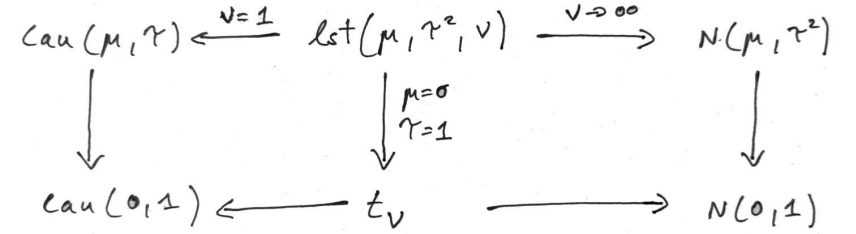 Cau(μ,τ) ν=1 lst(μ,τ²,ν) ν→∞ N(μ,τ²)
μ=0
τ=1
Cau(0,1) tν N(0,1)